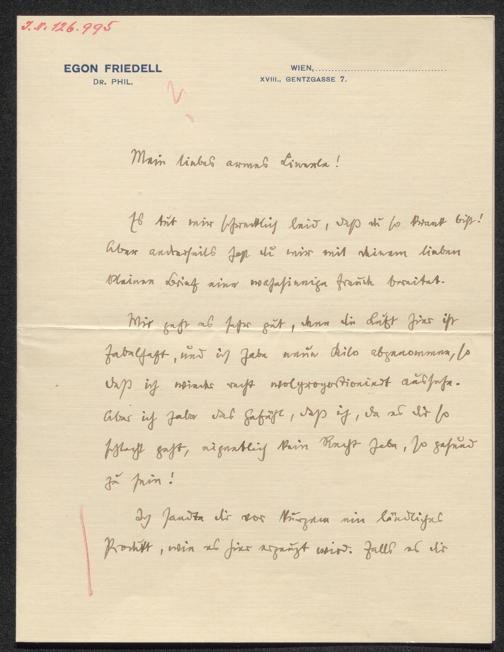 J.N. 126.995
EGON FRIEDELL
DR. PHIL.
WIEN,
XVIII., GENTZGASSE 7.
Mein liebes armes Linerle!
Es tut mir schrecklich leid, daß du so krank bist!
Aber anderseits hast du mir mit deinem lieben
kleinen Brief eine wahnsinnige Freude bereitet.
Mir geht es sehr gut, denn die Luft hier ist
fabelhaft, und ich habe neun Kilo abgenommen, so
daß ich wieder recht wolproportioniert aussehe.
Aber ich habe das Gefühl, daß ich, da es dir so
schlecht geht, eigentlich kein Recht habe, so gesund
zu sein!
Ich sandte dir vor Kurzem ein ländliches
Produkt, wie es hier erzeugt wird. Falls es dir